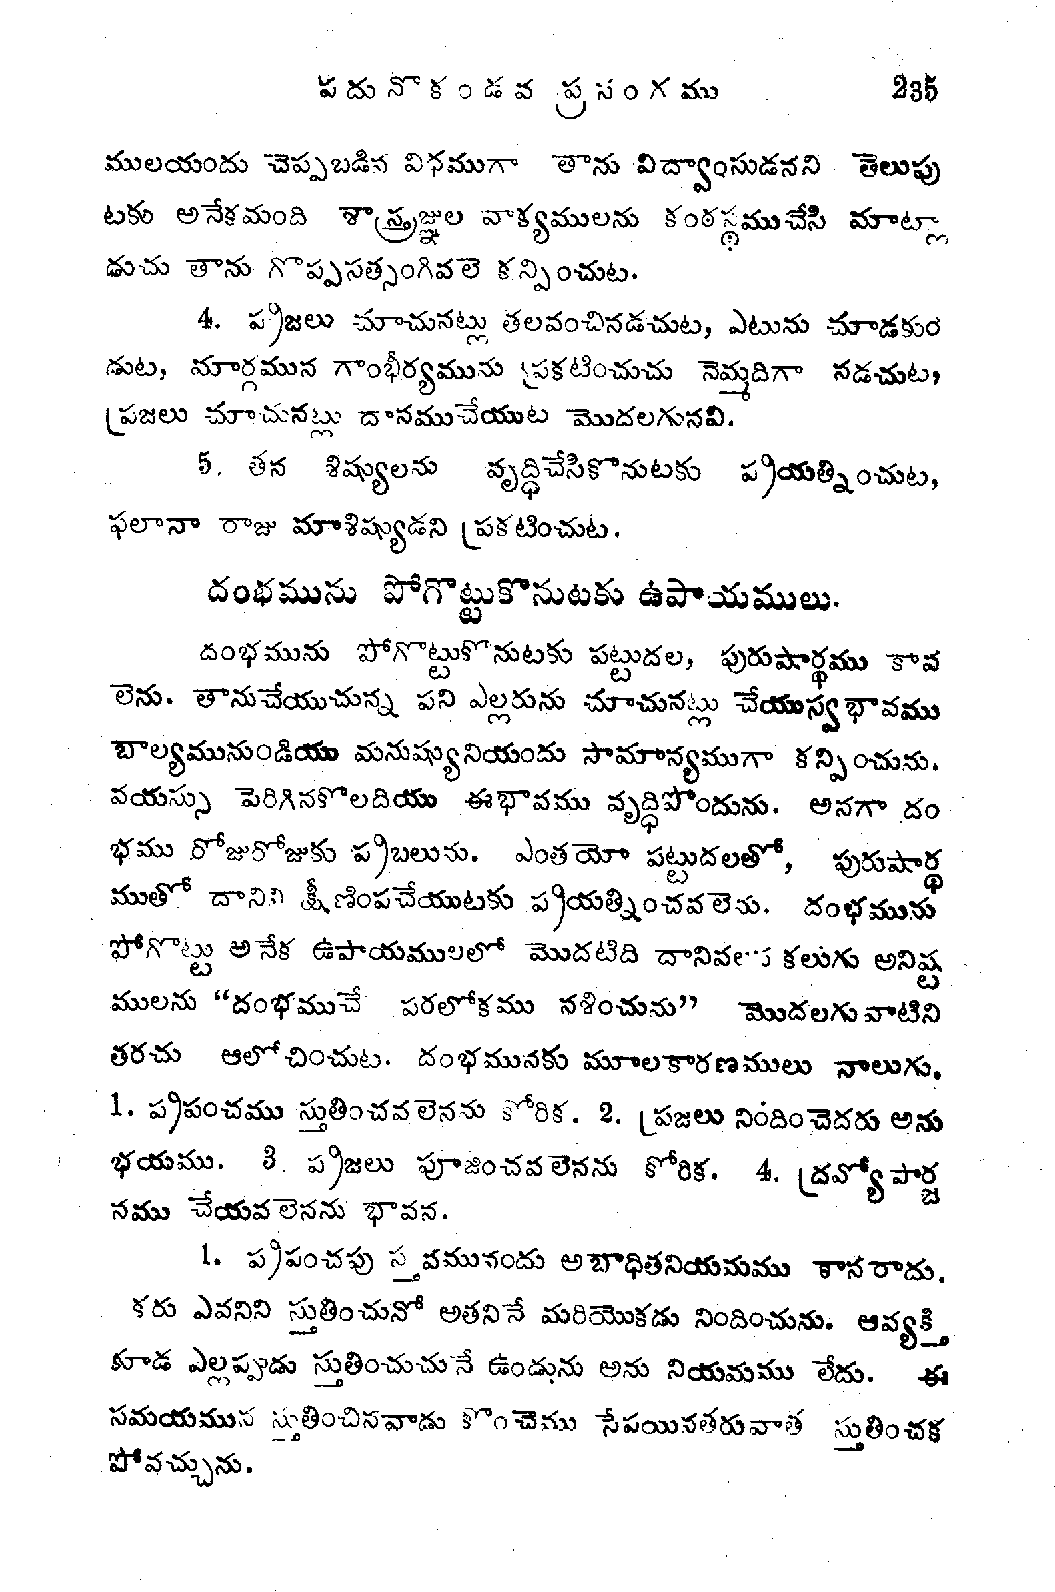 పదునొకండవ ప్రసంగము 235
ములయందు చెప్పబడిన విధముగా తాను విద్వాంసుడనని తెలుపు
టకు అనేకమంది శాస్త్రజ్ఞుల వాక్యములను కంఠస్థముచేసి మాట్లా
డుచు తాను గొప్పసత్సంగివలె కన్పించుట.
4. ప్రజలు చూచునట్లు తలవంచినడచుట, ఎటును చూడకుం
డుట, మార్గమున గాంభీర్యమును ప్రకటించుచు నెమ్మదిగా నడచుట,
ప్రజలు చూచునట్లు దానముచేయుట మొదలగునవి.
5. తన శిష్యులను వృద్ధిచేసికొనుటకు ప్రయత్నించుట,
ఫలానా రాజు మాశిష్యుడని ప్రకటించుట.
దంభమును పోగొట్టుకొనుటకు ఉపాయములు.
దంభమును పోగొట్టుకొనుటకు పట్టుదల, పురుషార్థము కావ
లెను. తానుచేయుచున్న పని ఎల్లరును చూచునట్లు చేయుస్వభావము
బాల్యమునుండియు మనుష్యునియందు సామాన్యముగా కన్పించును.
వయస్సు పెరిగినకొలదియు ఈభావము వృద్ధిపొందును. అనగా దం
భము రోజురోజుకు ప్రబలును. ఎంతయో పట్టుదలతో, పురుషార్థ
ముతో దానిని క్షీణింపచేయుటకు ప్రయత్నించవలెను. దంభమును
పోగొట్టు అనేక ఉపాయములలో మొదటిది దానివలన కలుగు అనిష్ట
ములను “దంభముచే పరలోకము నశించును” మొదలగువాటిని
తరచు ఆలోచించుట. దంభమునకు మూలకారణములు నాలుగు.
1. ప్రపంచము స్తుతించవలెనను కోరిక. 2. ప్రజలు నిందించెదరు అను
భయము. 3. ప్రజలు పూజించవలెనను కోరిక. 4. ద్రవ్యోపార్జ
నము చేయవలెనను భావన.
1. ప్రపంచపు స్తవమునందు అబాధితనియమము కానరాదు.
కరు ఎవనిని స్తుతించునో అతనినే మరియొకడు నిందించును. ఆవ్యక్తి
కూడ ఎల్లప్పుడు స్తుతించుచునే ఉండును అను నియమము లేదు. ఈ
సమయమున స్తుతించినవాడు కొంచెము సేపయినతరువాత స్తుతించక
పోవచ్చును.